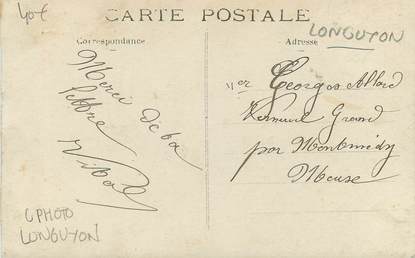 40€
CARTE POSTALE
LONGUYON
Correspondance
Adresse
Merci de ta
lettre
Vital
Mer Georges Allard
Verneuil Grand
par Montmédy
Meuse
C PHOTO
LONGUYON